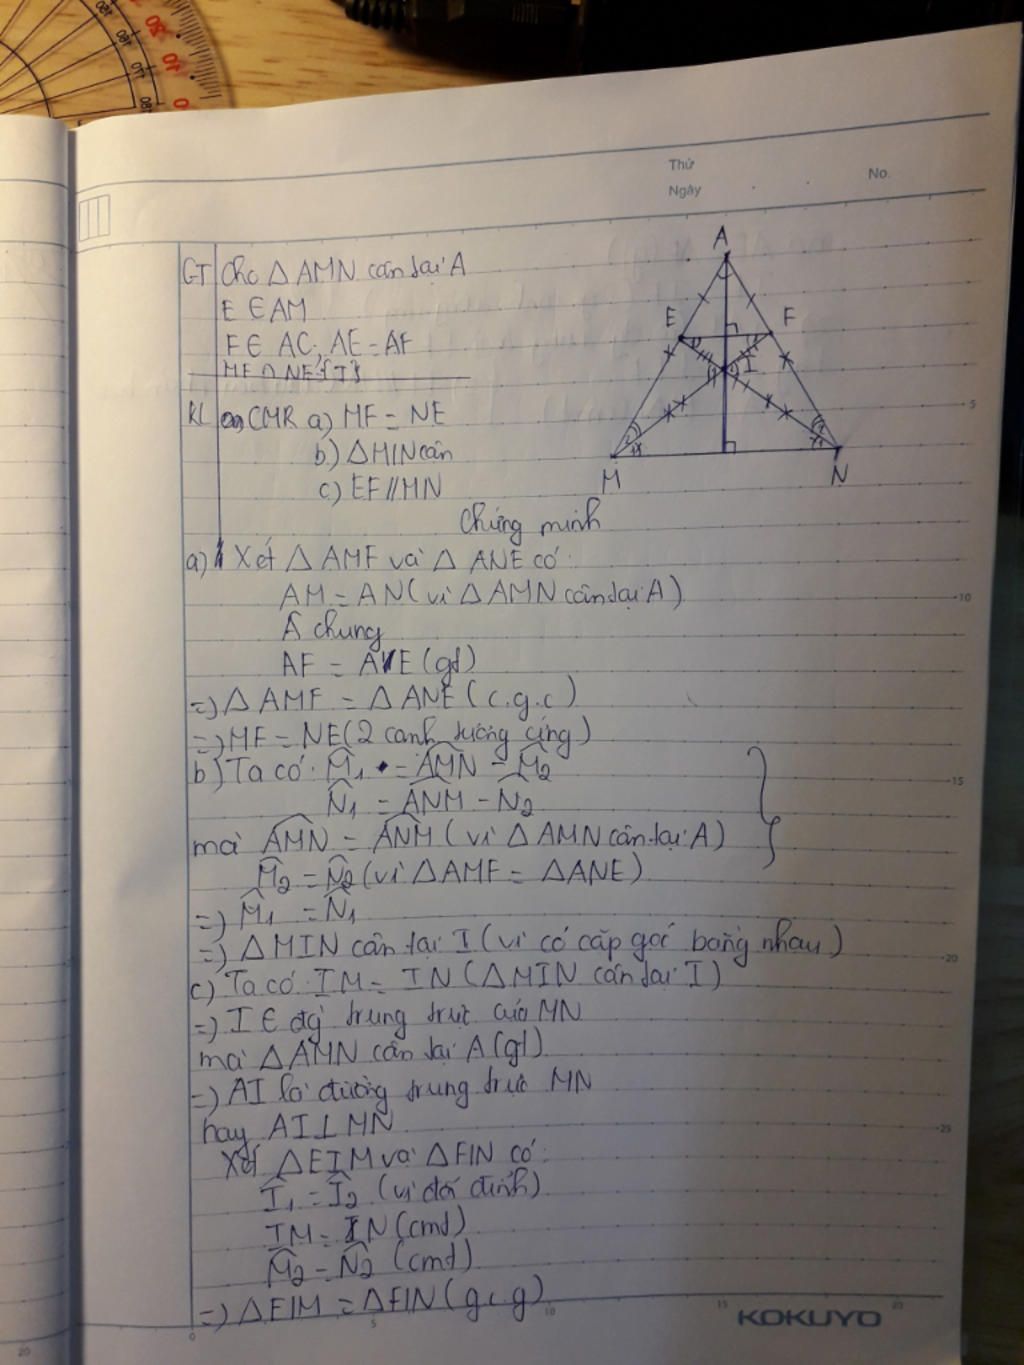 Thứ
Ngày
No.
GT Cho △ AMN cân tại A
E ∈ AM
F ∈ AC; AE = AF
MF ∩ NE {I}
KL CMR a) MF = NE
b) △MIN cân
c) EF // MN
A
E
F
I
M
N
Chứng minh
a) Xét △ AMF và △ ANE có:
AM = AN (vì △ AMN cân tại A)
Â chung
AF = AE (gt)
=> △ AMF = △ ANE (c.g.c)
=> MF = NE (2 cạnh tương ứng)
b) Ta có: M̂₁ = AMN - M̂₂
N̂₁ = ANM - N̂₂
mà AMN = ANM (vì △ AMN cân tại A)
M̂₂ = N̂₂ (vì △AMF = △ANE)
=> M̂₁ = N̂₁
=> △ MIN cân tại I (vì có cặp góc bằng nhau)
c) Ta có: IM = IN (△MIN cân tại I)
=> I ∈ đg trung trực của MN
mà △ AMN cân tại A (gt)
=> AI là đường trung trực MN
hay AI ⊥ MN
Xét △EIM và △FIN có:
Î₁ = Î₂ (vì đối đỉnh)
IM = IN (cmt)
M̂₂ = N̂₂ (cmt)
=> △EIM = △FIN (g.c.g)
KOKUYO